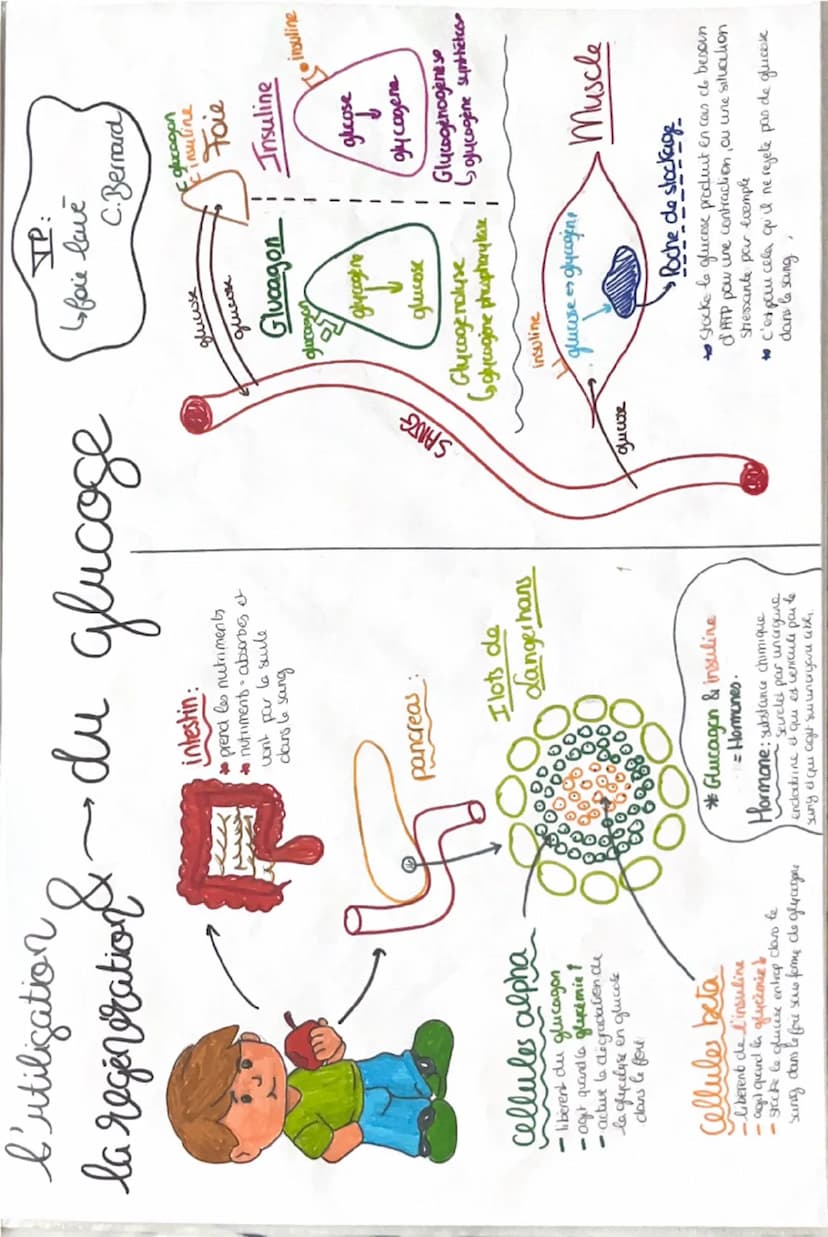 L'utilisation
&
la régénération → du glucose
intestin :
prend les nutriments
nutriments = absorbés et
vont par la suite
dans le sang
pancreas :
Ilots de
Langerhans
cellules alpha
- libèrent du glucagon
- agit quand la glycémie ↑
- active la dégradation du
la glycolyse en glucose
dans le foie
Cellules beta
- libèrent de l'insuline
- agit quand la glycémie ↓
- stocke le glucose en trop dans le
sang dans le foie sous forme de glycogène
* Glucagon & insuline
= Hormones.
Hormone : substance chimique
sécrétée par un organe
endocrine et qui est véhiculée par le
sang et qui agit sur un organe cible.
TP :
↳ foie lavé
C. Bernard
glucagon
insuline
Foie
glucose
glucose
SANG
Glucagon
glucagon
glycogène
↓
glucose
Glycogénolyse
↳ glycogène phosphorylase
Insuline
insuline
glucose
↓
glycogène
Glycogénogénèse
↳ glycogène synthétase
Muscle
insuline
glucose ↔ glycogène
glucose
Poche de stockage
Stocke le glucose produit en cas de besoin
d'ATP pour une contraction, ou une situation
stressante par exemple
C'est pour cela qu'il ne rejette pas de glucose
dans le sang.